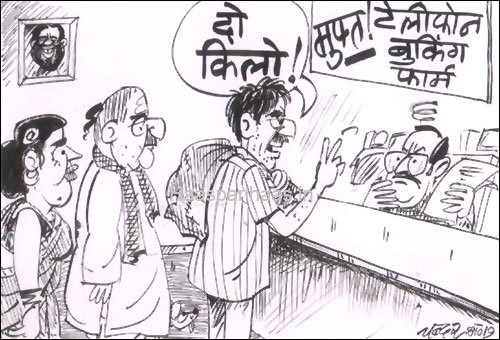 दो
किलो!
मुफ्त! टेलीफोन
बुकिंग
फार्म